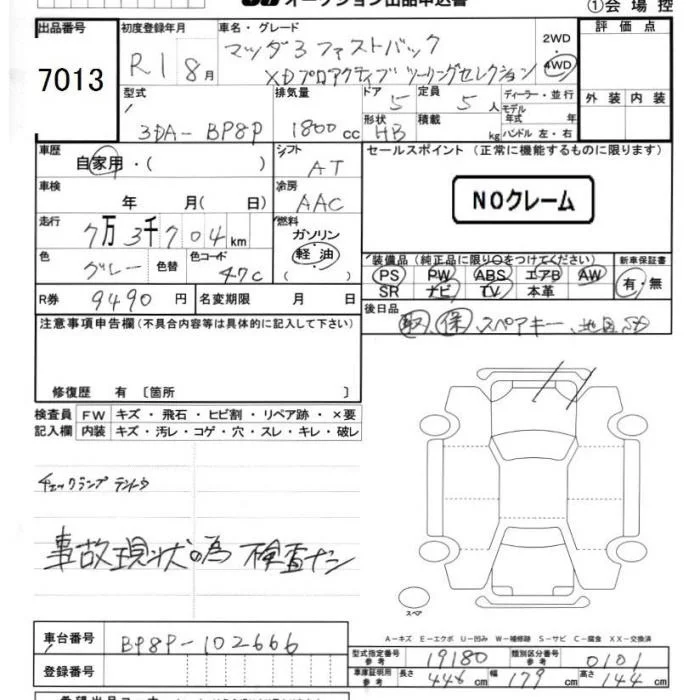 オークション出品申込書 ①会場控
出品番号 7013
初度登録年月 R1 8月
車名・グレード マツダ3 ファストバック
XDプロアクティブ ツーリングセレクション
2WD・4WD
評価点
外装 内装
型式 3DA-BP8P
排気量 1800cc
ドア 5 定員 5人
形状 HB 積載 kg
ディーラー・並行
モデル年式 年
ハンドル 左・右
車歴 自家用・( )
シフト AT
セールスポイント (正常に機能するものに限ります)
NOクレーム
車検 年 月(日)
冷房 AAC
走行 7万3千704km
燃料 ガソリン 軽油 ( )
色 グレー 色替 色コード 47C
装備品(純正品に限り○をつけてください)
PS PW ABS エアB AW
SR ナビ TV 本革
新車保証書 有・無
R券 9490円 名変期限 月 日
後日品 取、保、スペアキー、地図SD
注意事項申告欄(不具合内容等は具体的に記入して下さい)
修復歴 有 〔箇所 〕
検査員記入欄
FW キズ・飛石・ヒビ割・リペア跡・×要
内装 キズ・汚レ・コゲ・穴・スレ・キレ・破レ
チェックランプ テントウ
事故現状の為 検査ナシ
スペア
A-キズ E-エクボ U-凹み W-補修跡 S-サビ C-腐食 XX-交換済
車台番号 BP8P-102666
登録番号
型式指定番号 参考 19180 類別区分番号 参考 0101
車庫証明用 参考 長さ 446cm 幅 179cm 高さ 144cm
希望出品コーナー